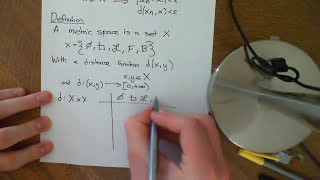 d(xₙ, x) < ε
Definition
A metric space is a set X
X = {∅, ҍ, ℒ, F, B}
With a distance function d(x,y)
x,y ∈ X
and d:(x,y) → [0,+∞)
d: X×X
∅ ҍ ℒ